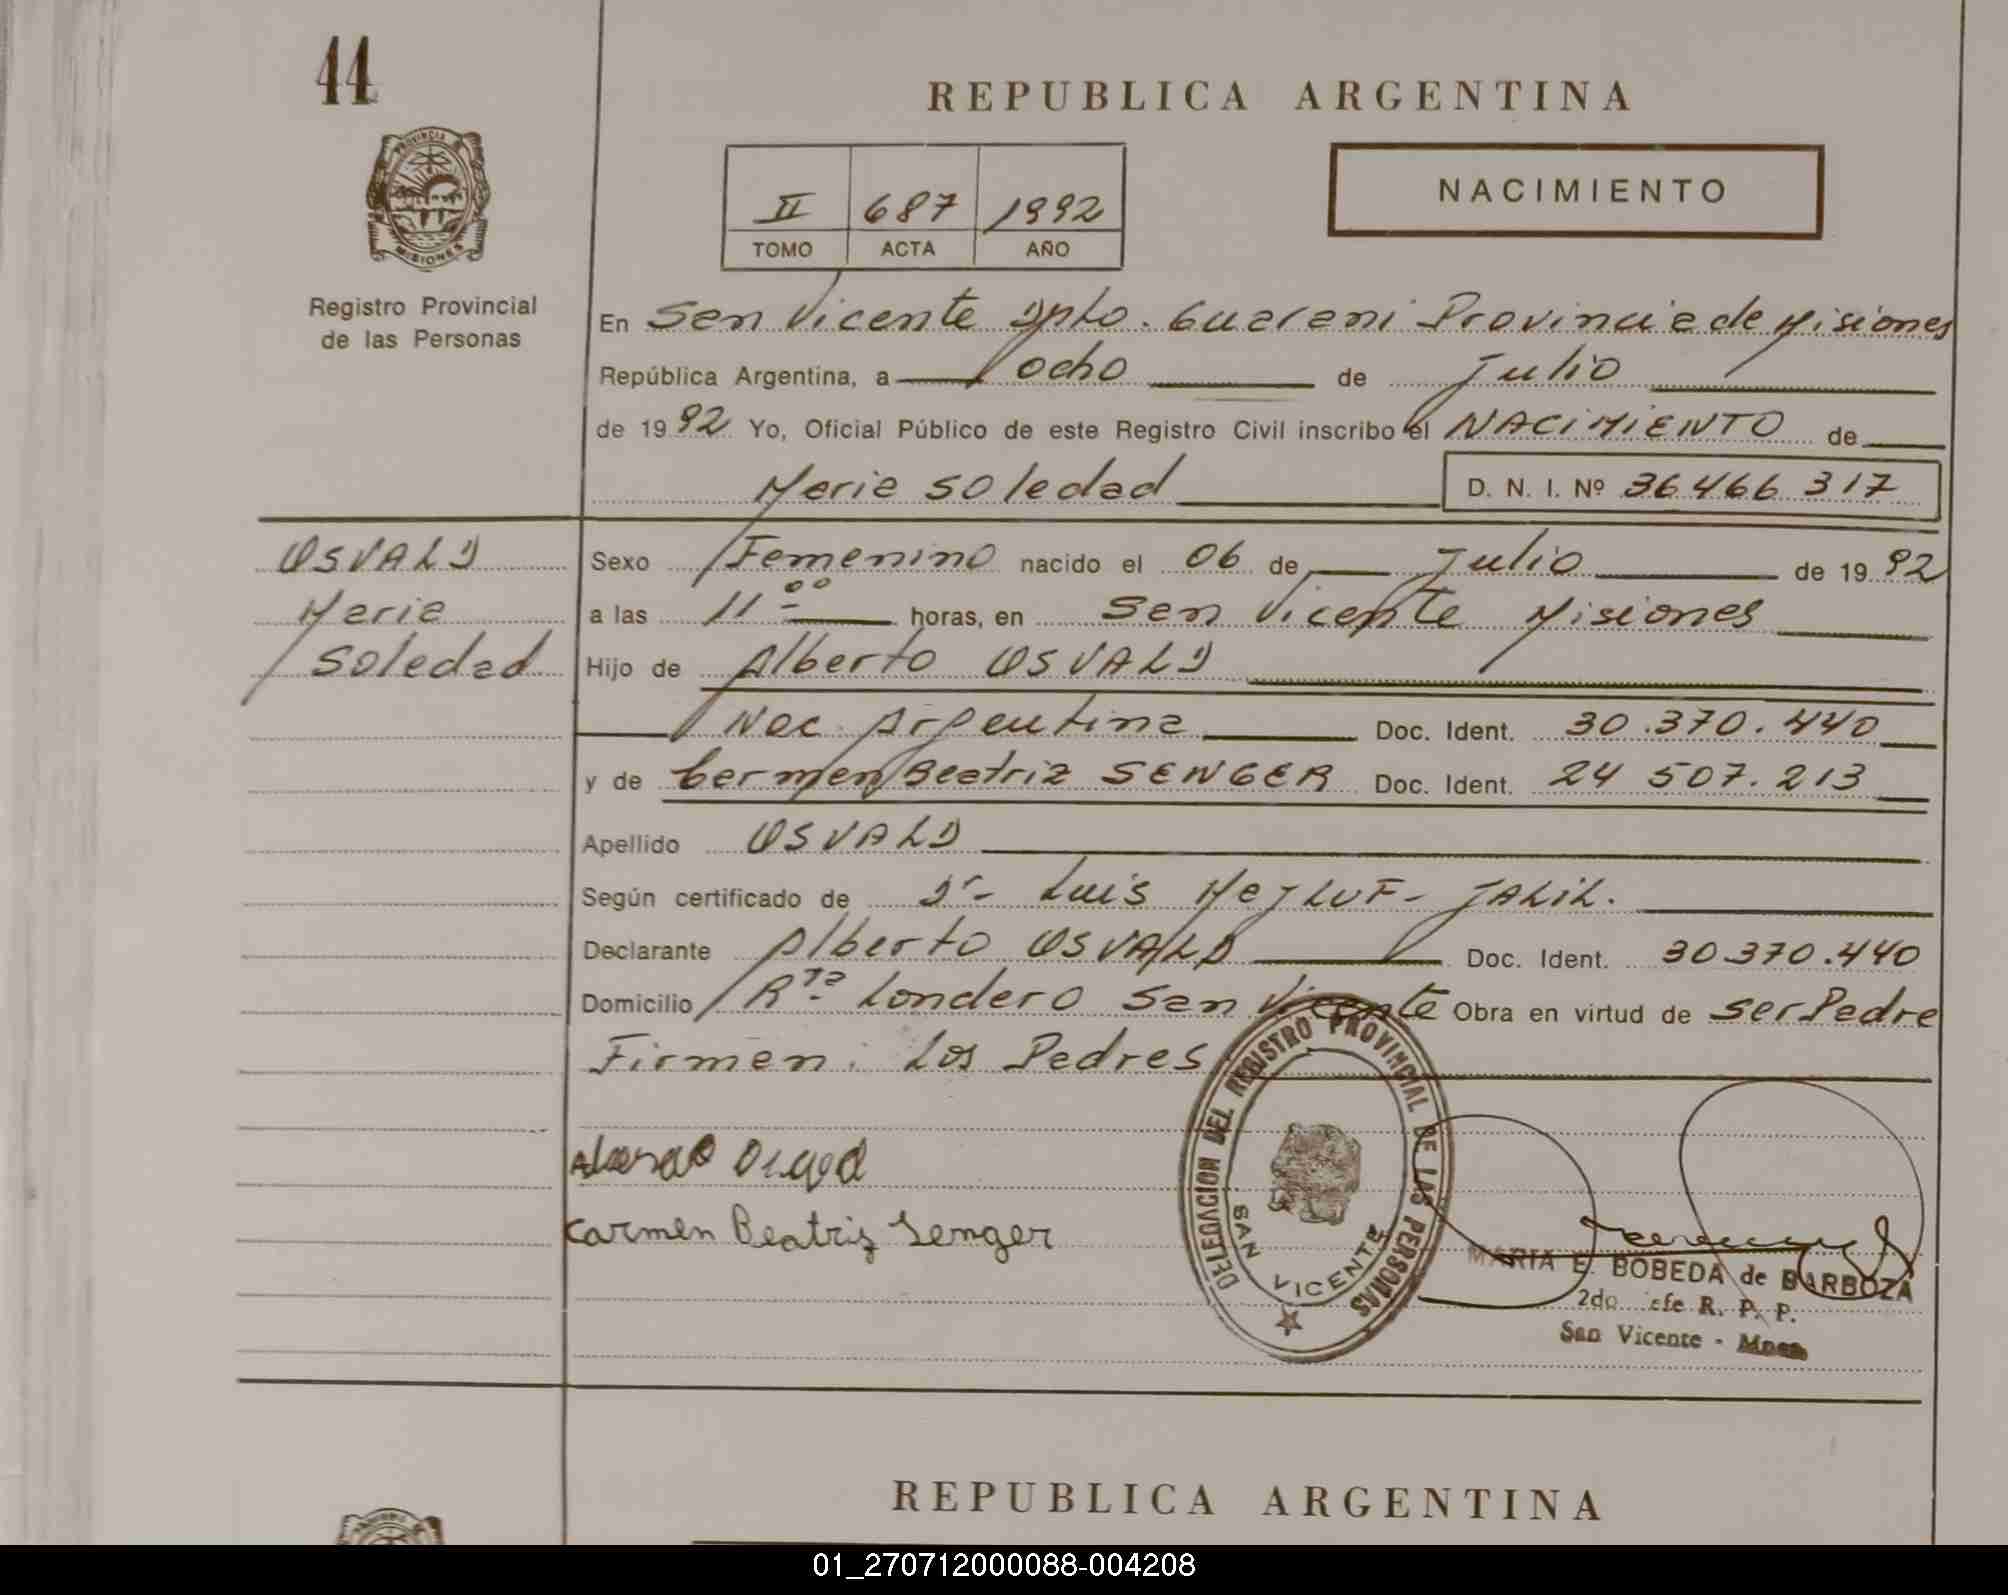 44
REPUBLICA ARGENTINA
PROVINCIA DE
MISIONES
Registro Provincial
de las Personas
II 687 1992
TOMO ACTA AÑO
NACIMIENTO
En San Vicente Dpto. Guarani Provincia de Misiones
República Argentina, a ocho de Julio
de 1992 Yo, Oficial Público de este Registro Civil inscribo el NACIMIENTO de
Maria Soledad D. N. I. Nº 36466 317
OSVALD
Maria
Soledad
Sexo Femenino nacido el 06 de Julio de 1992
a las 11.00 horas, en San Vicente Misiones
Hijo de Alberto OSVALD
Nac. Argentina Doc. Ident. 30.370.440
y de Carmen Beatriz SENGER Doc. Ident. 24 507.213
Apellido OSVALD
Según certificado de Dr- Luis MaJLUF- JALIL.
Declarante Alberto OSVALD Doc. Ident. 30.370.440
Domicilio Rta Londero San Vicente Obra en virtud de ser Padre
Firman: Los Padres
Carmen Beatriz Senger
DELEGACION DEL REGISTRO PROVINCIAL DE LAS PERSONAS
SAN VICENTE
MARIA E. BOBEDA de BARBOZA
2do efe R. P. P.
San Vicente - Mnes
REPUBLICA ARGENTINA
01_270712000088-004208